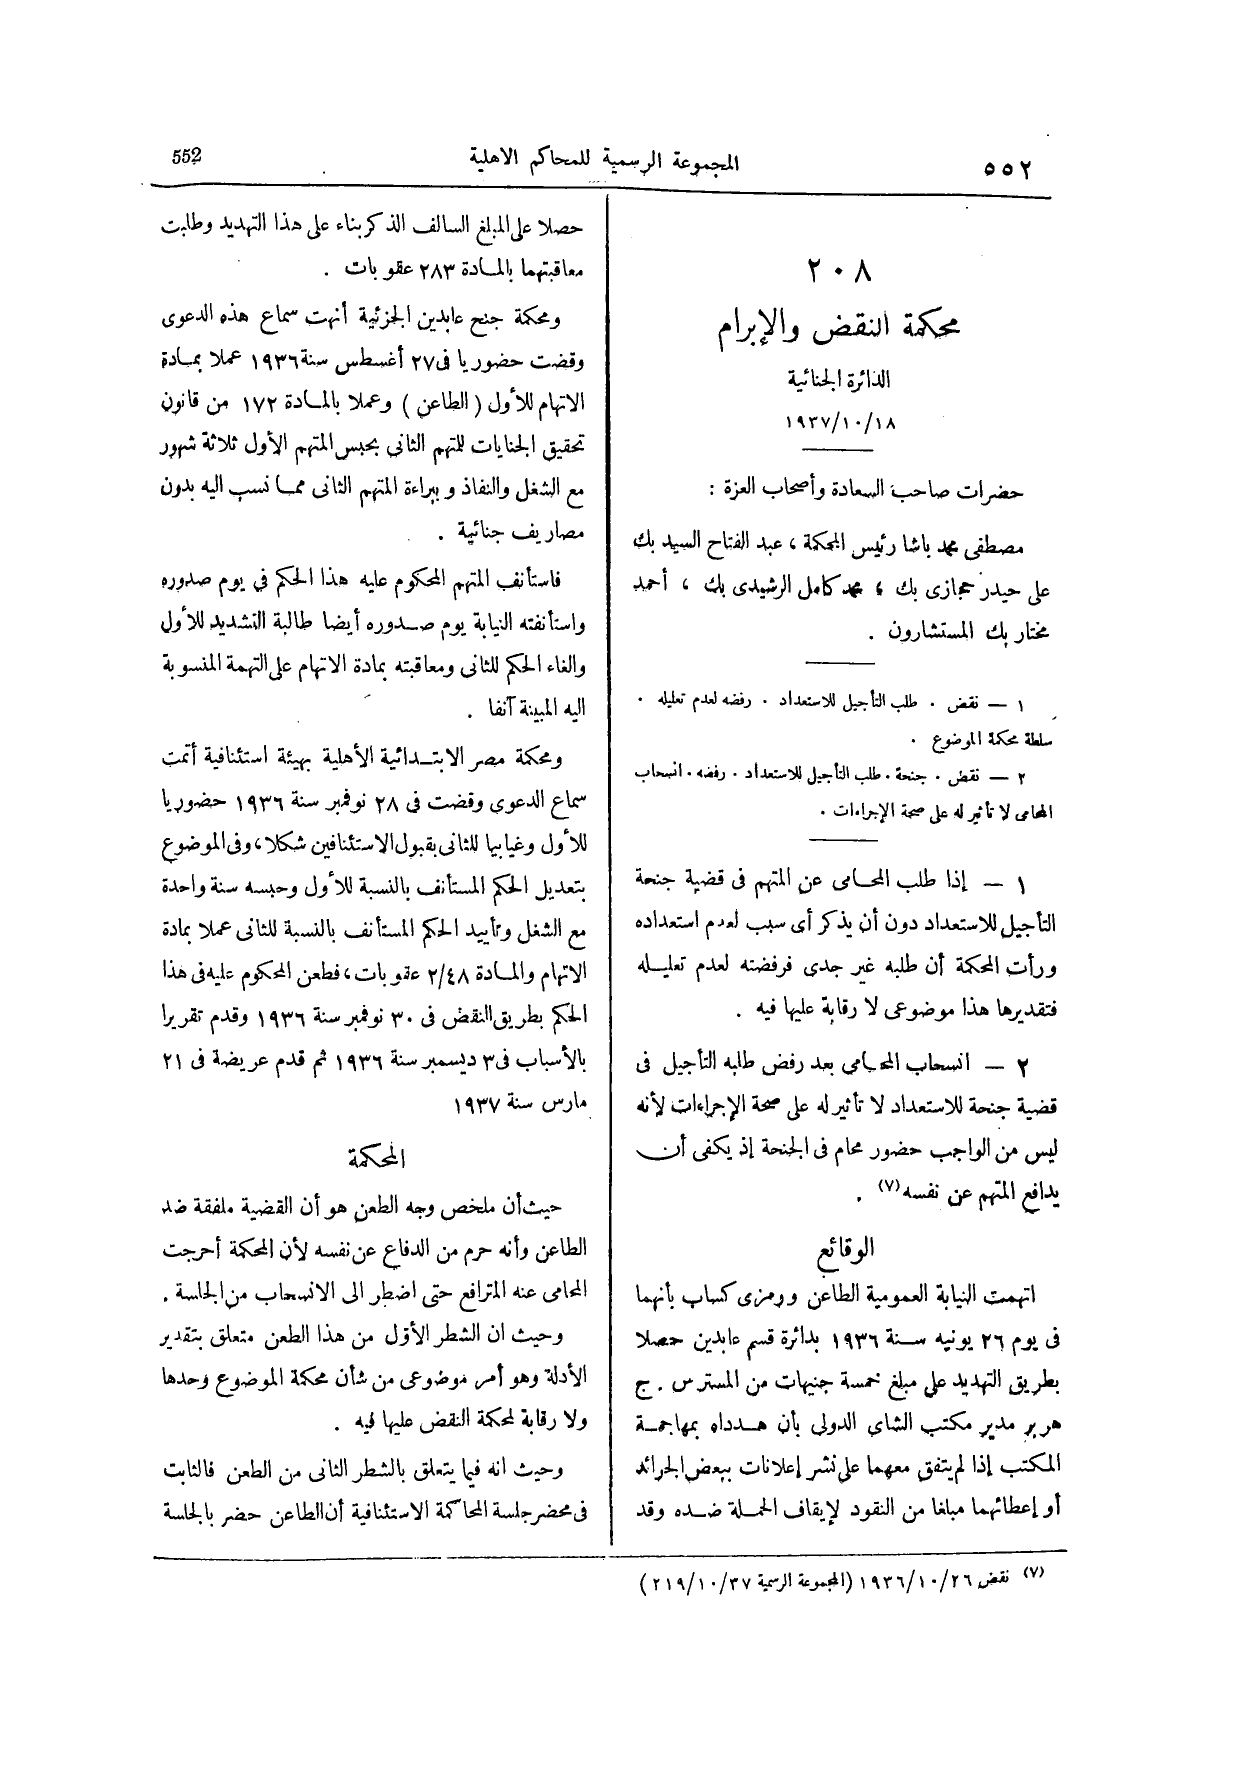 ٥٥٢
المجموعة الرسمية للمحاكم الاهلية
552
٢٠٨
محكمة النقض والإبرام
الدائرة الجنائية
١٩٣٧/١٠/١٨
حضرات صاحب السعادة وأصحاب العزة :
مصطفى محمد باشا رئيس المحكمة ، عبد الفتاح السيد بك
على حيدر حجازى بك ، محمد كامل الرشيدى بك ، أحمد
مختار بك المستشارون .
١ — نقض . طلب التأجيل للاستعداد . رفضه لعدم تعليله .
سلطة محكمة الموضوع .
٢ — نقض . جنحة . طلب التأجيل للاستعداد . رفضه . انسحاب
المحامى لا تأثير له على صحة الإجراءات .
١ — إذا طلب المحامى عن المتهم فى قضية جنحة
التأجيل للاستعداد دون أن يذكر أى سبب لعدم استعداده
ورأت المحكمة أن طلبه غير جدى فرفضته لعدم تعليله
فتقديرها هذا موضوعى لا رقابة عليها فيه .
٢ — انسحاب المحامى بعد رفض طلبه التأجيل فى
قضية جنحة للاستعداد لا تأثير له على صحة الإجراءات لأنه
ليس من الواجب حضور محام فى الجنحة إذ يكفى أن
يدافع المتهم عن نفسه(٧) .
الوقائع
اتهمت النيابة العمومية الطاعن ورمزى كساب بأنهما
فى يوم ٢٦ يونيه سنة ١٩٣٦ بدائرة قسم عابدين حصلا
بطريق التهديد على مبلغ خمسة جنيهات من المستر س . ج
هربر مدير مكتب الشاى الدولى بأن هدداه بمهاجمة
المكتب إذا لم يتفق معهما على نشر إعلانات ببعض الجرائد
أو إعطائهما مبلغا من النقود لإيقاف الحملة ضده وقد
(٧) نقض ١٩٣٦/١٠/٢٦ (المجموعة الرسمية ٢١٩/١٠/٣٧)
حصلا على المبلغ السالف الذكر بناء على هذا التهديد وطلبت
معاقبتهما بالمادة ٢٨٣ عقوبات .
ومحكمة جنح عابدين الجزئية أنهت سماع هذه الدعوى
وقضت حضوريا فى ٢٧ أغسطس سنة ١٩٣٦ عملا بمادة
الاتهام للأول (الطاعن) وعملا بالمادة ١٧٢ من قانون
تحقيق الجنايات للمتهم الثانى بحبس المتهم الأول ثلاثة شهور
مع الشغل والنفاذ وببراءة المتهم الثانى مما نسب اليه بدون
مصاريف جنائية .
فاستأنف المتهم المحكوم عليه هذا الحكم في يوم صدوره
واستأنفته النيابة يوم صدوره أيضا طالبة التشديد للأول
والغاء الحكم للثانى ومعاقبته بمادة الاتهام على التهمة المنسوبة
اليه المبينة آنفا .
ومحكمة مصر الابتدائية الأهلية بهيئة استئنافية أتمت
سماع الدعوى وقضت فى ٢٨ نوفمبر سنة ١٩٣٦ حضوريا
للأول وغيابيا للثانى بقبول الاستئنافين شكلا، وفى الموضوع
بتعديل الحكم المستأنف بالنسبة للأول وحبسه سنة واحدة
مع الشغل وتأييد الحكم المستأنف بالنسبة للثانى عملا بمادة
الاتهام والمادة ٢/٤٨ عقوبات، فطعن المحكوم عليه فى هذا
الحكم بطريق النقض فى ٣٠ نوفمبر سنة ١٩٣٦ وقدم تقريرا
بالأسباب فى ٣ ديسمبر سنة ١٩٣٦ ثم قدم عريضة فى ٢١
مارس سنة ١٩٣٧
المحكمة
حيث أن ملخص وجه الطعن هو أن القضية ملفقة ضد
الطاعن وأنه حرم من الدفاع عن نفسه لأن المحكمة أحرجت
المحامى عنه المترافع حتى اضطر الى الانسحاب من الجلسة .
وحيث ان الشطر الأول من هذا الطعن متعلق بتقدير
الأدلة وهو أمر موضوعى من شأن محكمة الموضوع وحدها
ولا رقابة لمحكمة النقض عليها فيه .
وحيث انه فيما يتعلق بالشطر الثانى من الطعن فالثابت
فى محضر جلسة المحاكمة الاستئنافية أن الطاعن حضر بالجلسة